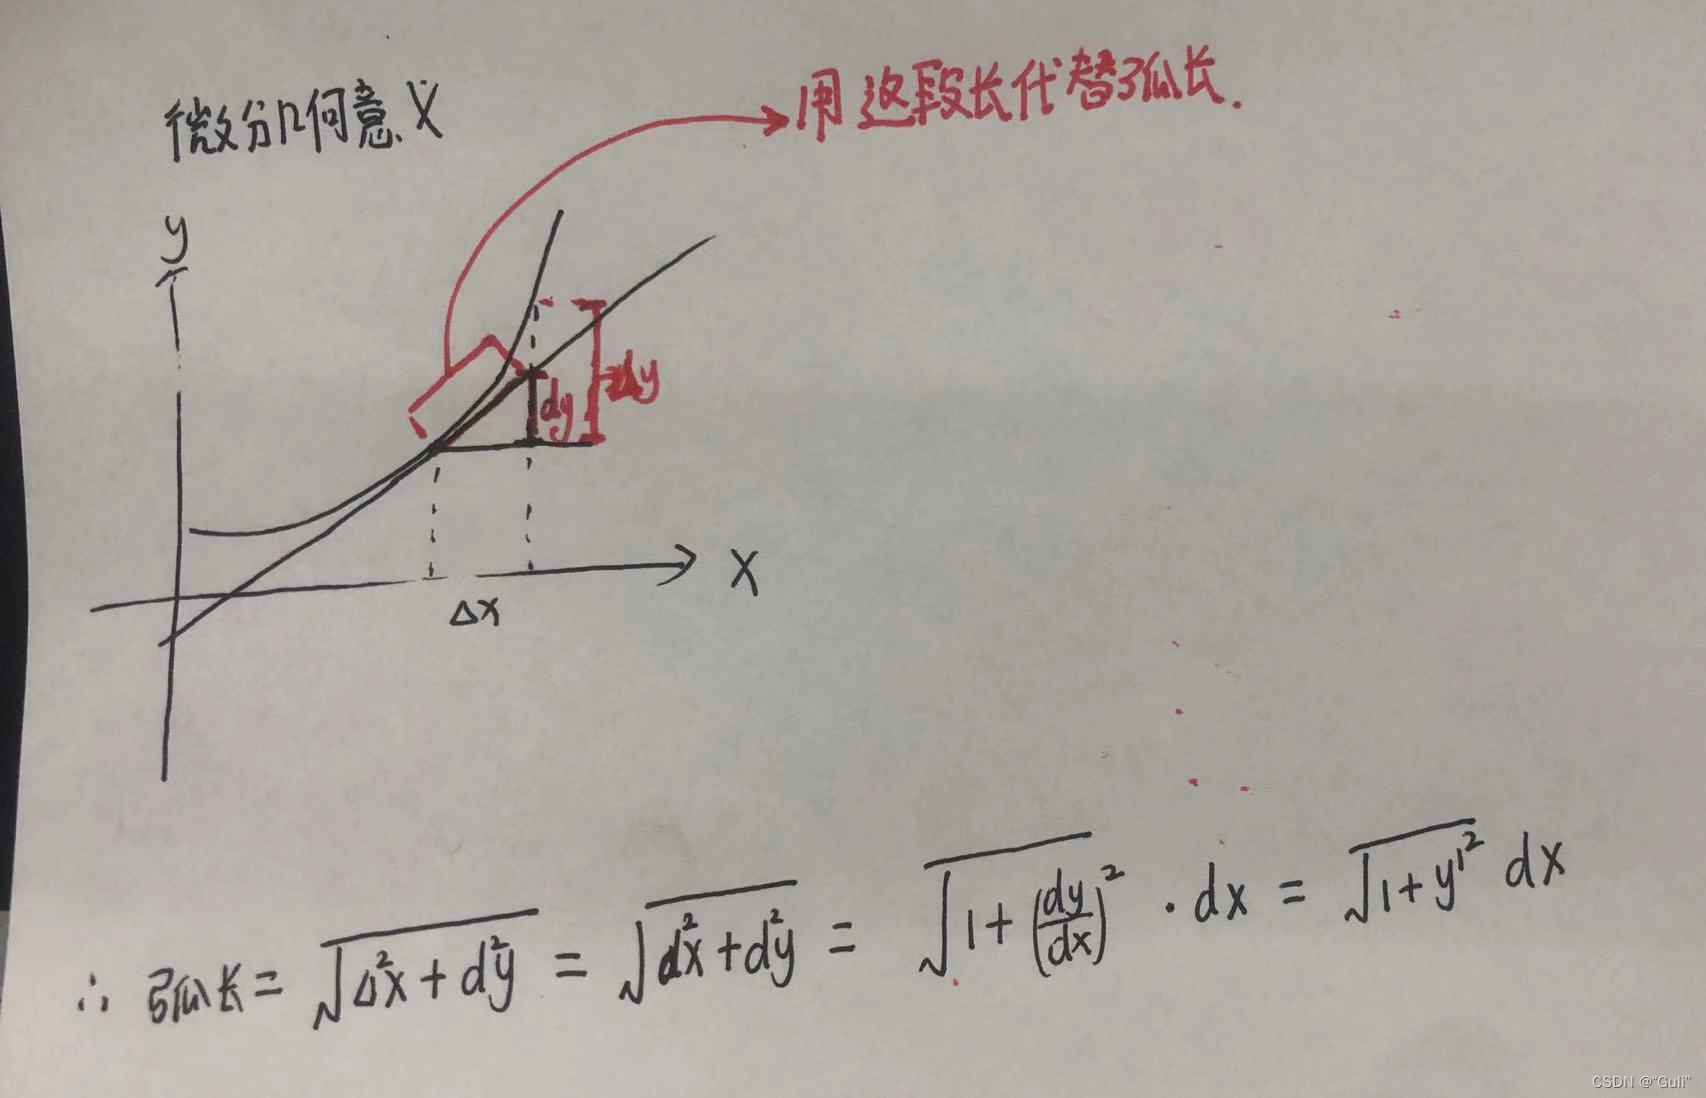 微分几何意义
用这段长代替弧长.
y
Δy
dy
x
Δx
∴ 弧长 = √(Δ²x + d²y) = √(d²x + d²y) = √(1 + (dy/dx)²) · dx = √(1 + y'²) dx
CSDN @"Guli"